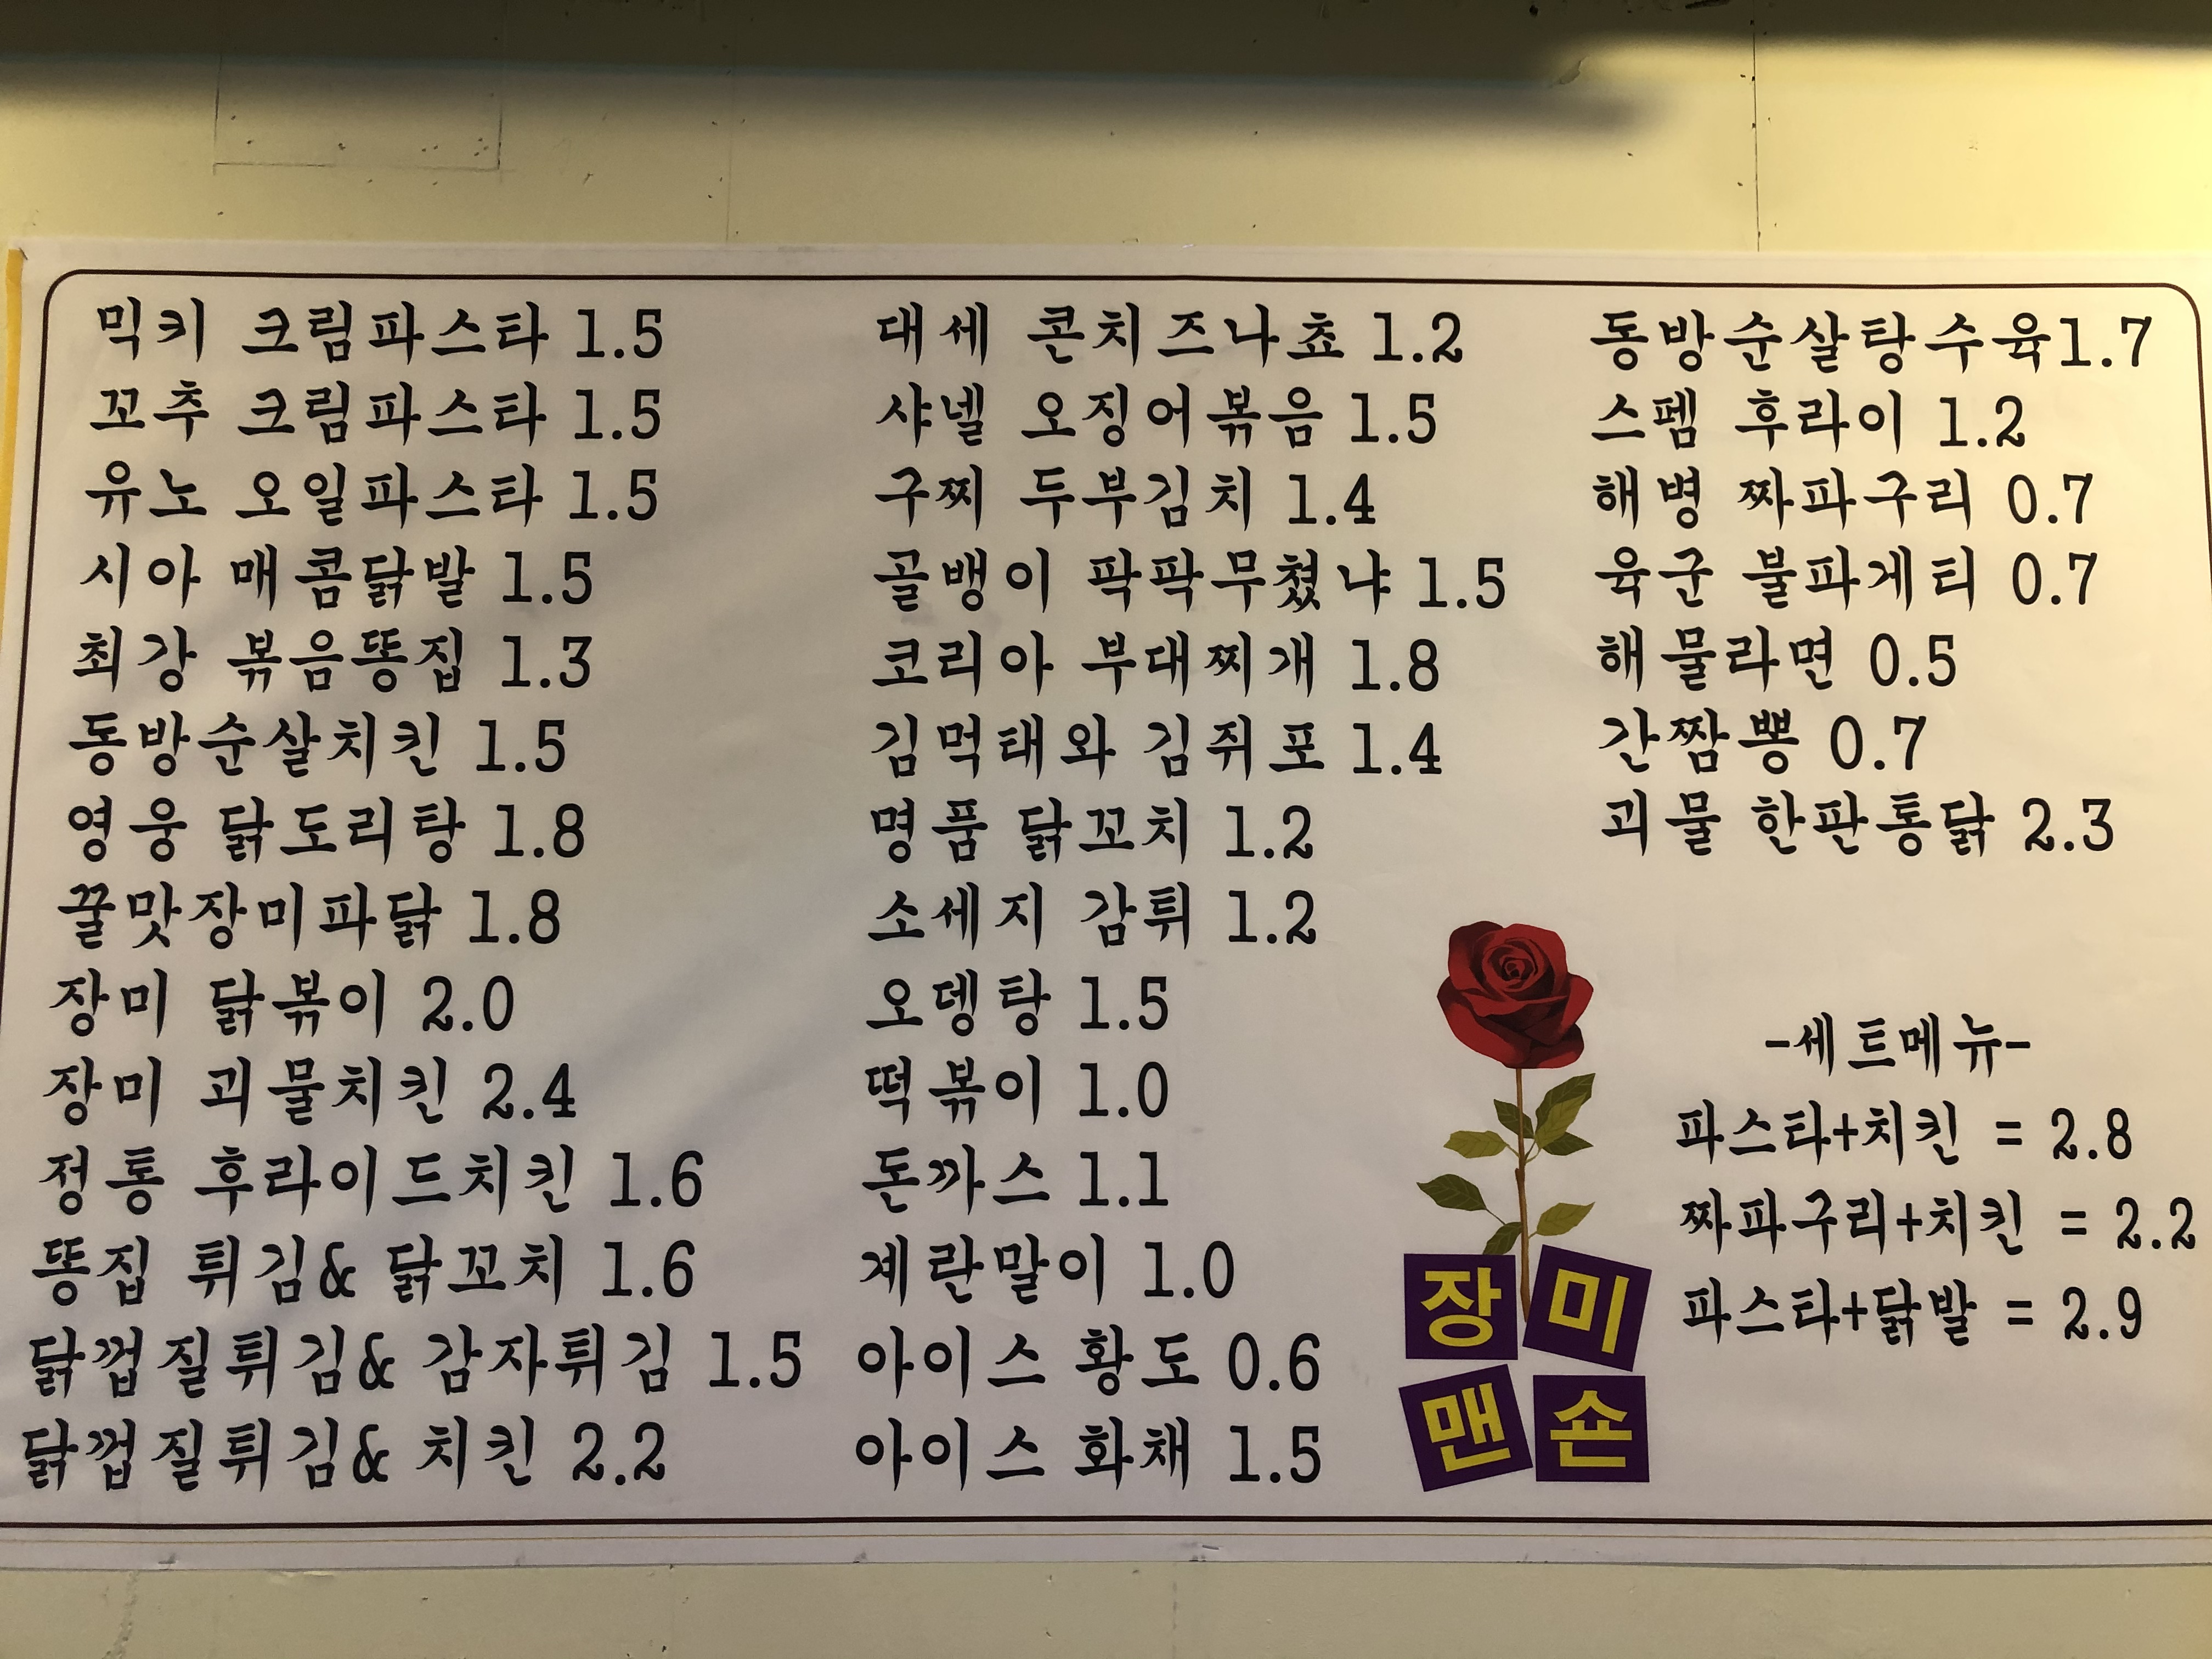 믹키 크림파스타 1.5
꼬추 크림파스타 1.5
유노 오일파스타 1.5
시아 매콤닭발 1.5
최강 볶음똥집 1.3
동방순살치킨 1.5
영웅 닭도리탕 1.8
꿀맛장미파닭 1.8
장미 닭볶이 2.0
장미 괴물치킨 2.4
정통 후라이드치킨 1.6
똥집 튀김& 닭꼬치 1.6
닭껍질튀김& 감자튀김 1.5
닭껍질튀김& 치킨 2.2
대세 콘치즈나쵸 1.2
샤넬 오징어볶음 1.5
구찌 두부김치 1.4
골뱅이 팍팍무쳤냐 1.5
코리아 부대찌개 1.8
김먹태와 김쥐포 1.4
명품 닭꼬치 1.2
소세지 감튀 1.2
오뎅탕 1.5
떡볶이 1.0
돈까스 1.1
계란말이 1.0
아이스 황도 0.6
아이스 화채 1.5
동방순살탕수육1.7
스펨 후라이 1.2
해병 짜파구리 0.7
육군 불파게티 0.7
해물라면 0.5
간짬뽕 0.7
괴물 한판통닭 2.3
-세트메뉴-
파스타+치킨 = 2.8
짜파구리+치킨 = 2.2
파스타+닭발 = 2.9
장미
맨숀